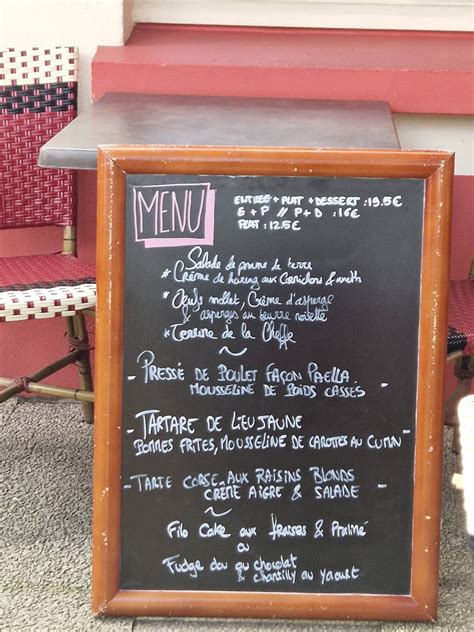 MENU
ENTREE + PLAT + DESSERT : 19.5€
E + P // P + D : 16€
PLAT : 12.5€
Salade de pomme de terre
* Crème de hareng aux Cornichons & aneth
* Oeufs mollet, Crème d'asperge
& asperges au beurre noisette
* Terrine de la Cheffe
~
- PRESSÉ DE POULET FAÇON PAELLA -
MOUSSELINE DE POIDS CASSÉS
- TARTARE DE LIEU JAUNE
POMMES FRITES, MOUSSELINE DE CAROTTES AU CUMIN -
- TARTE CORSE AUX RAISINS BLONDS -
CRÈME AIGRE & SALADE
~
Filo Cake aux fraises & Praliné
ou
Fudge dou au chocolat
& chantilly au yaourt